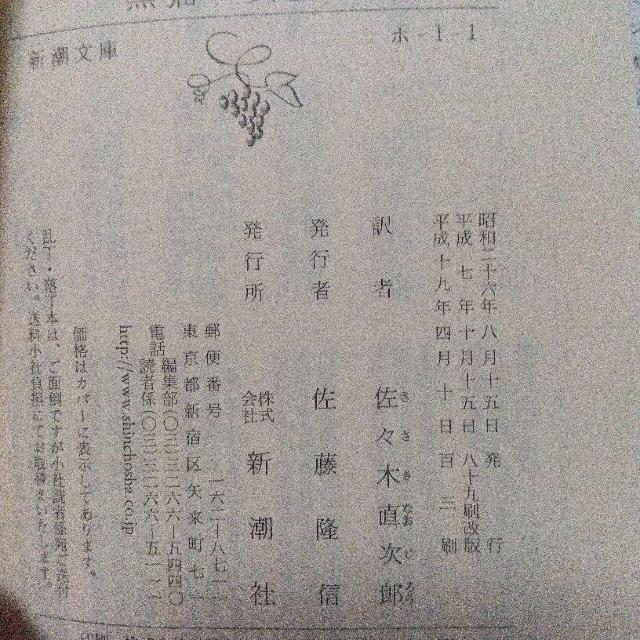 新潮文庫
ホ-1-1
昭和二十六年八月十五日発行
平成七年十月十五日八十九刷改版
平成十九年四月十日百三刷
訳者 佐々木直次郎
さ さ き なお じ ろう
発行者 佐藤隆信
発行所 株式会社 新潮社
郵便番号 一六二-八七一一
東京都新宿区矢来町七一
電話 編集部(〇三)三二六六-五四四〇
読者係(〇三)三二六六-五一一一
http://www.shinchosha.co.jp
価格はカバーに表示してあります。
乱丁・落丁本は、ご面倒ですが小社読者係宛ご送付
ください。送料小社負担にてお取替えいたします。